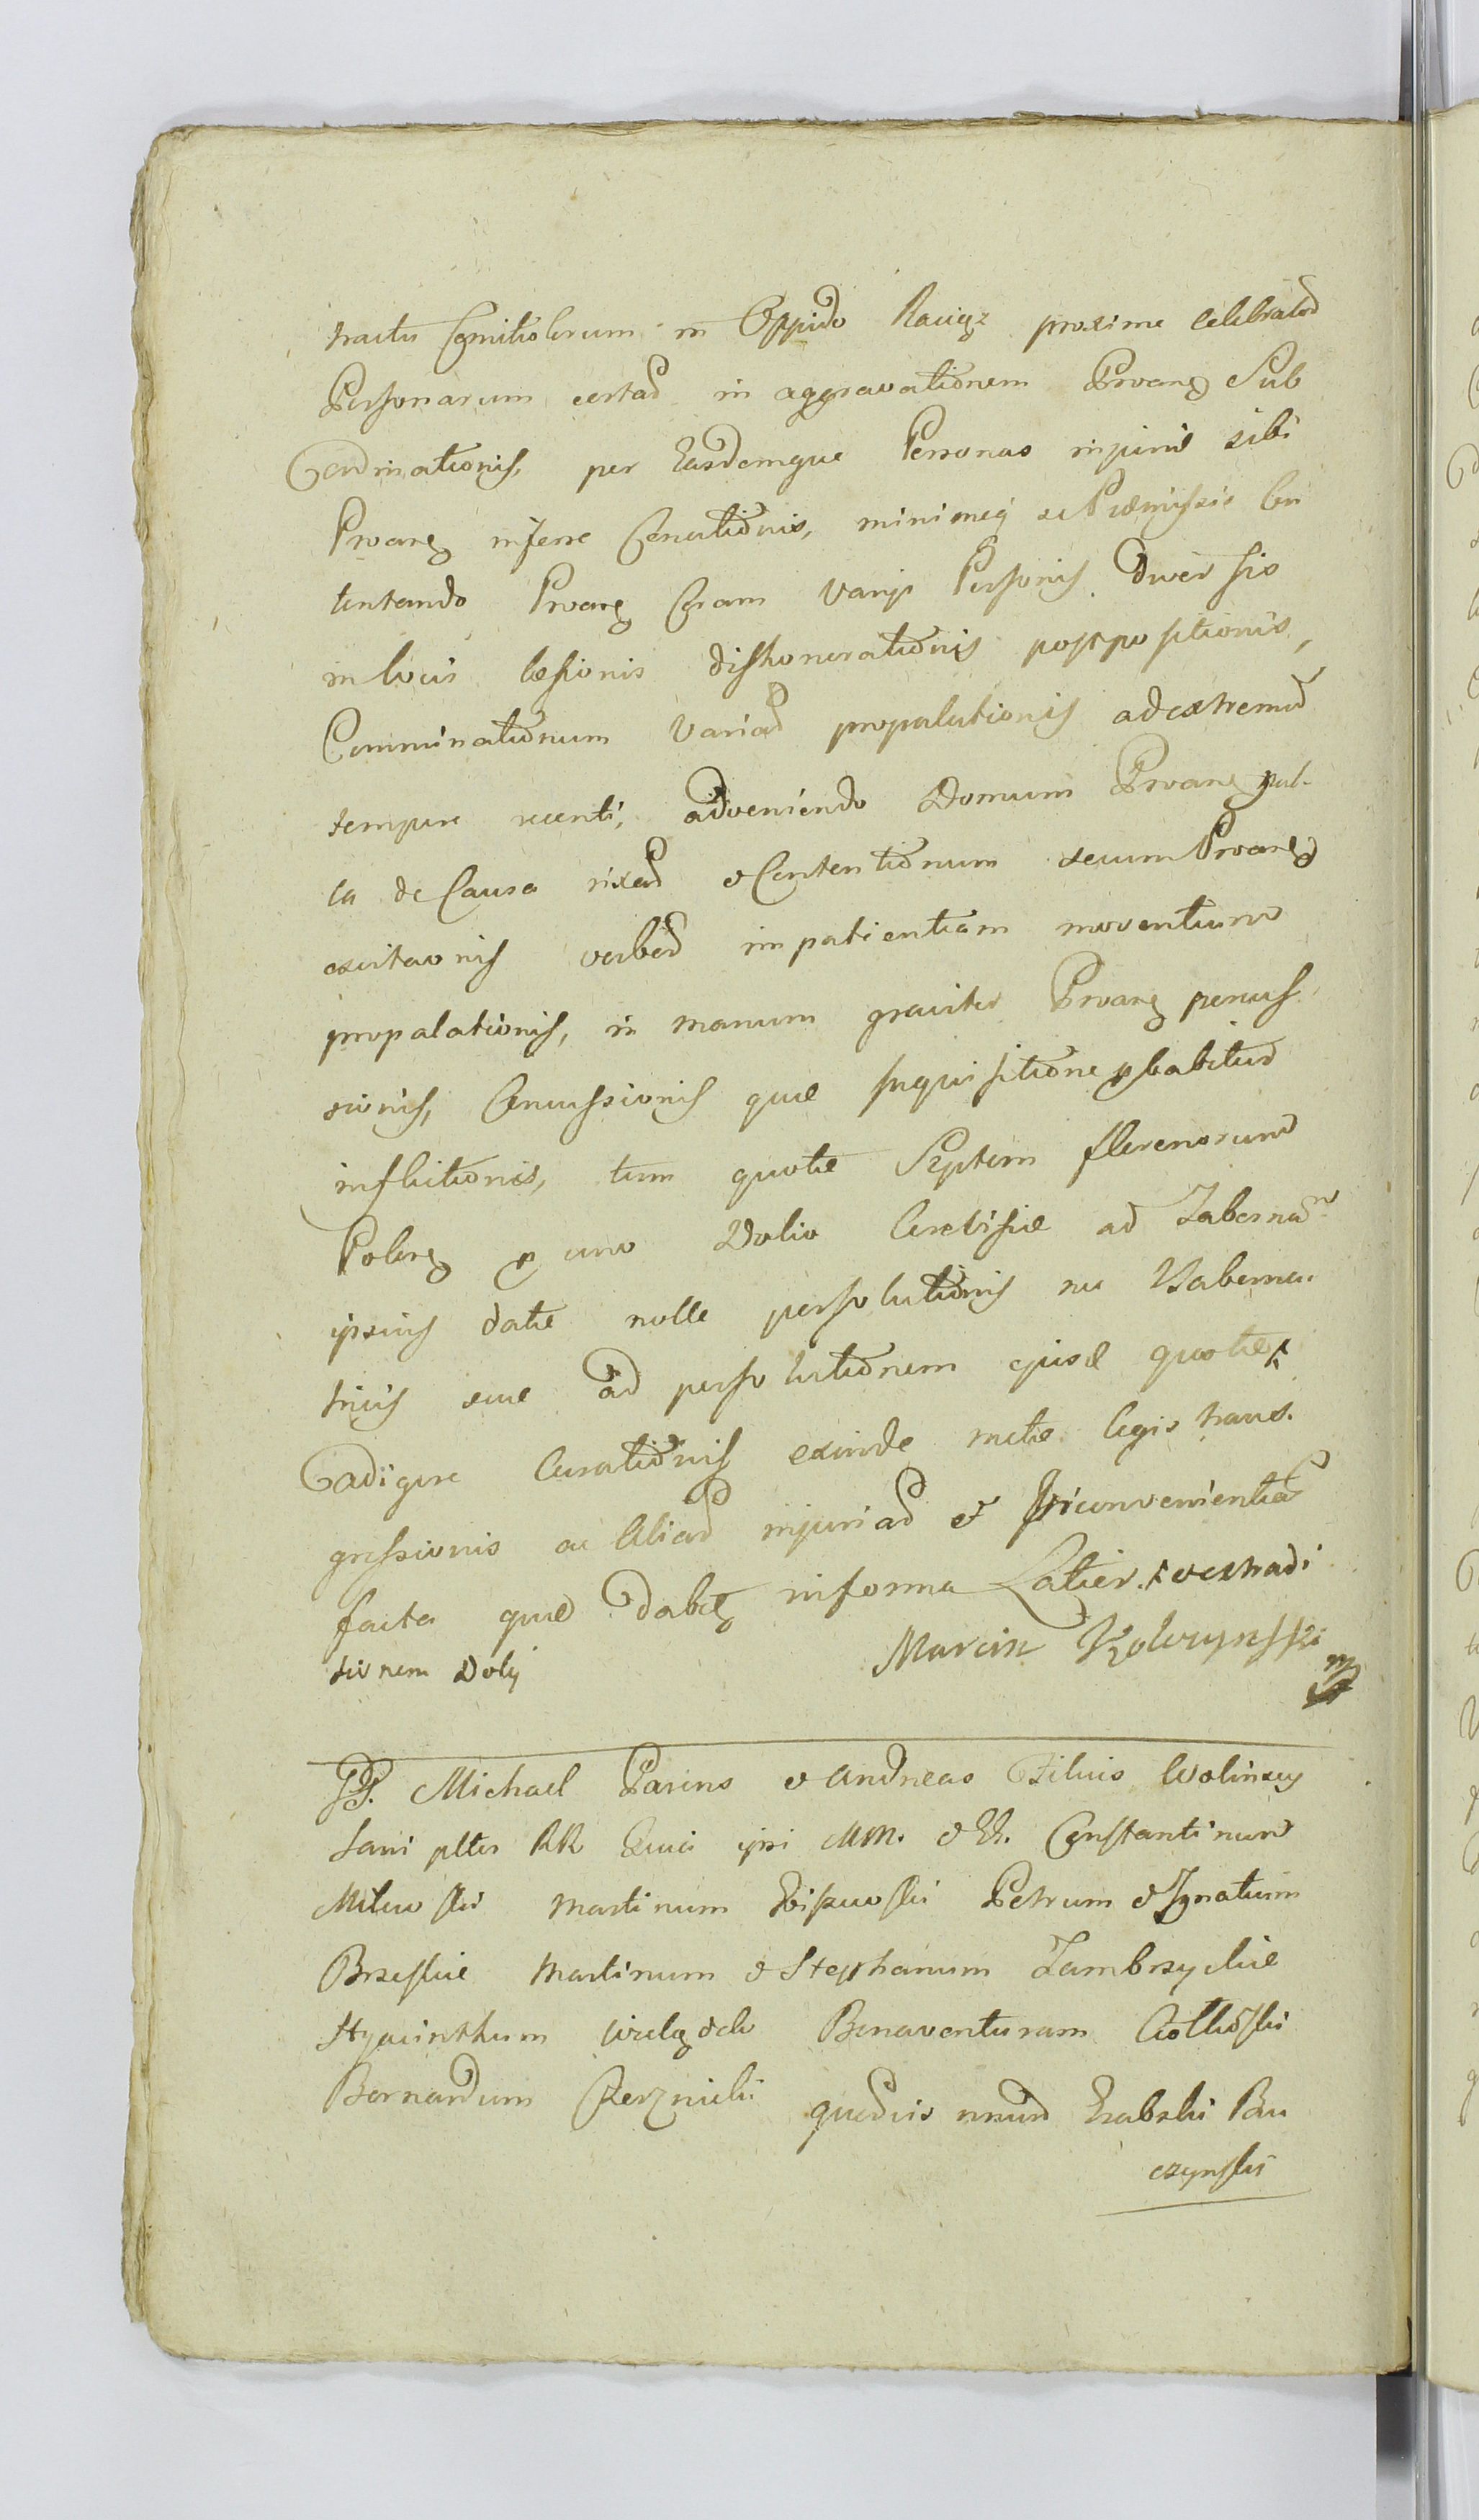 tractu Comitiolorum in Oppido Raciąz proxime celebratod
Personarum certad in aggravationem Prvang Sub
Ordinationis, per Easdemque Personas injurie sibi
Prvang inferre Conationis, minimeq se Præmissis Con
tentando Prvang Coram varijs Personis diversis
in locis læsionis dishonorationis postpositionis,
Comminationum variad propalationis ad extremud
tempore recenti, adveniendo Domum Prvang nul-
la de Causa rixad & Contentionum secum Prvang
excitationis verbod impatientiam moventium
propalationis, in manum graviter Prvang percus
sionis, Concussionis quæ Inquisitione pbabitur
inflictionis, tum quotæ Septem florenorum
Polong p uno Dolio Cerevisiæ ad Tabernam
ipsius datæ nolle persolutionis nec Taberna
suæ ad persolutionem ejusd quotæ
adigere Curationis exinde metæ legis trans
gressionis ac Aliad injuriad & Inconvenientiad
facta quæ dabit in forma Latior. & extradi
tionem Dolij
Marcin Kołczynski
mp
PP. Michael Parens & Andreas Filius Wolinscy
Sani pltes RR Quia ipsi MM. & GG. Constantinum
Milewski Martinum Petrum & Ignatium
Brzeskie Martinum & Stephanum Zambrzyckie
Hyacinthum Bonaventuram
Bernardum quedvis nnud Grabski Bu
czynski